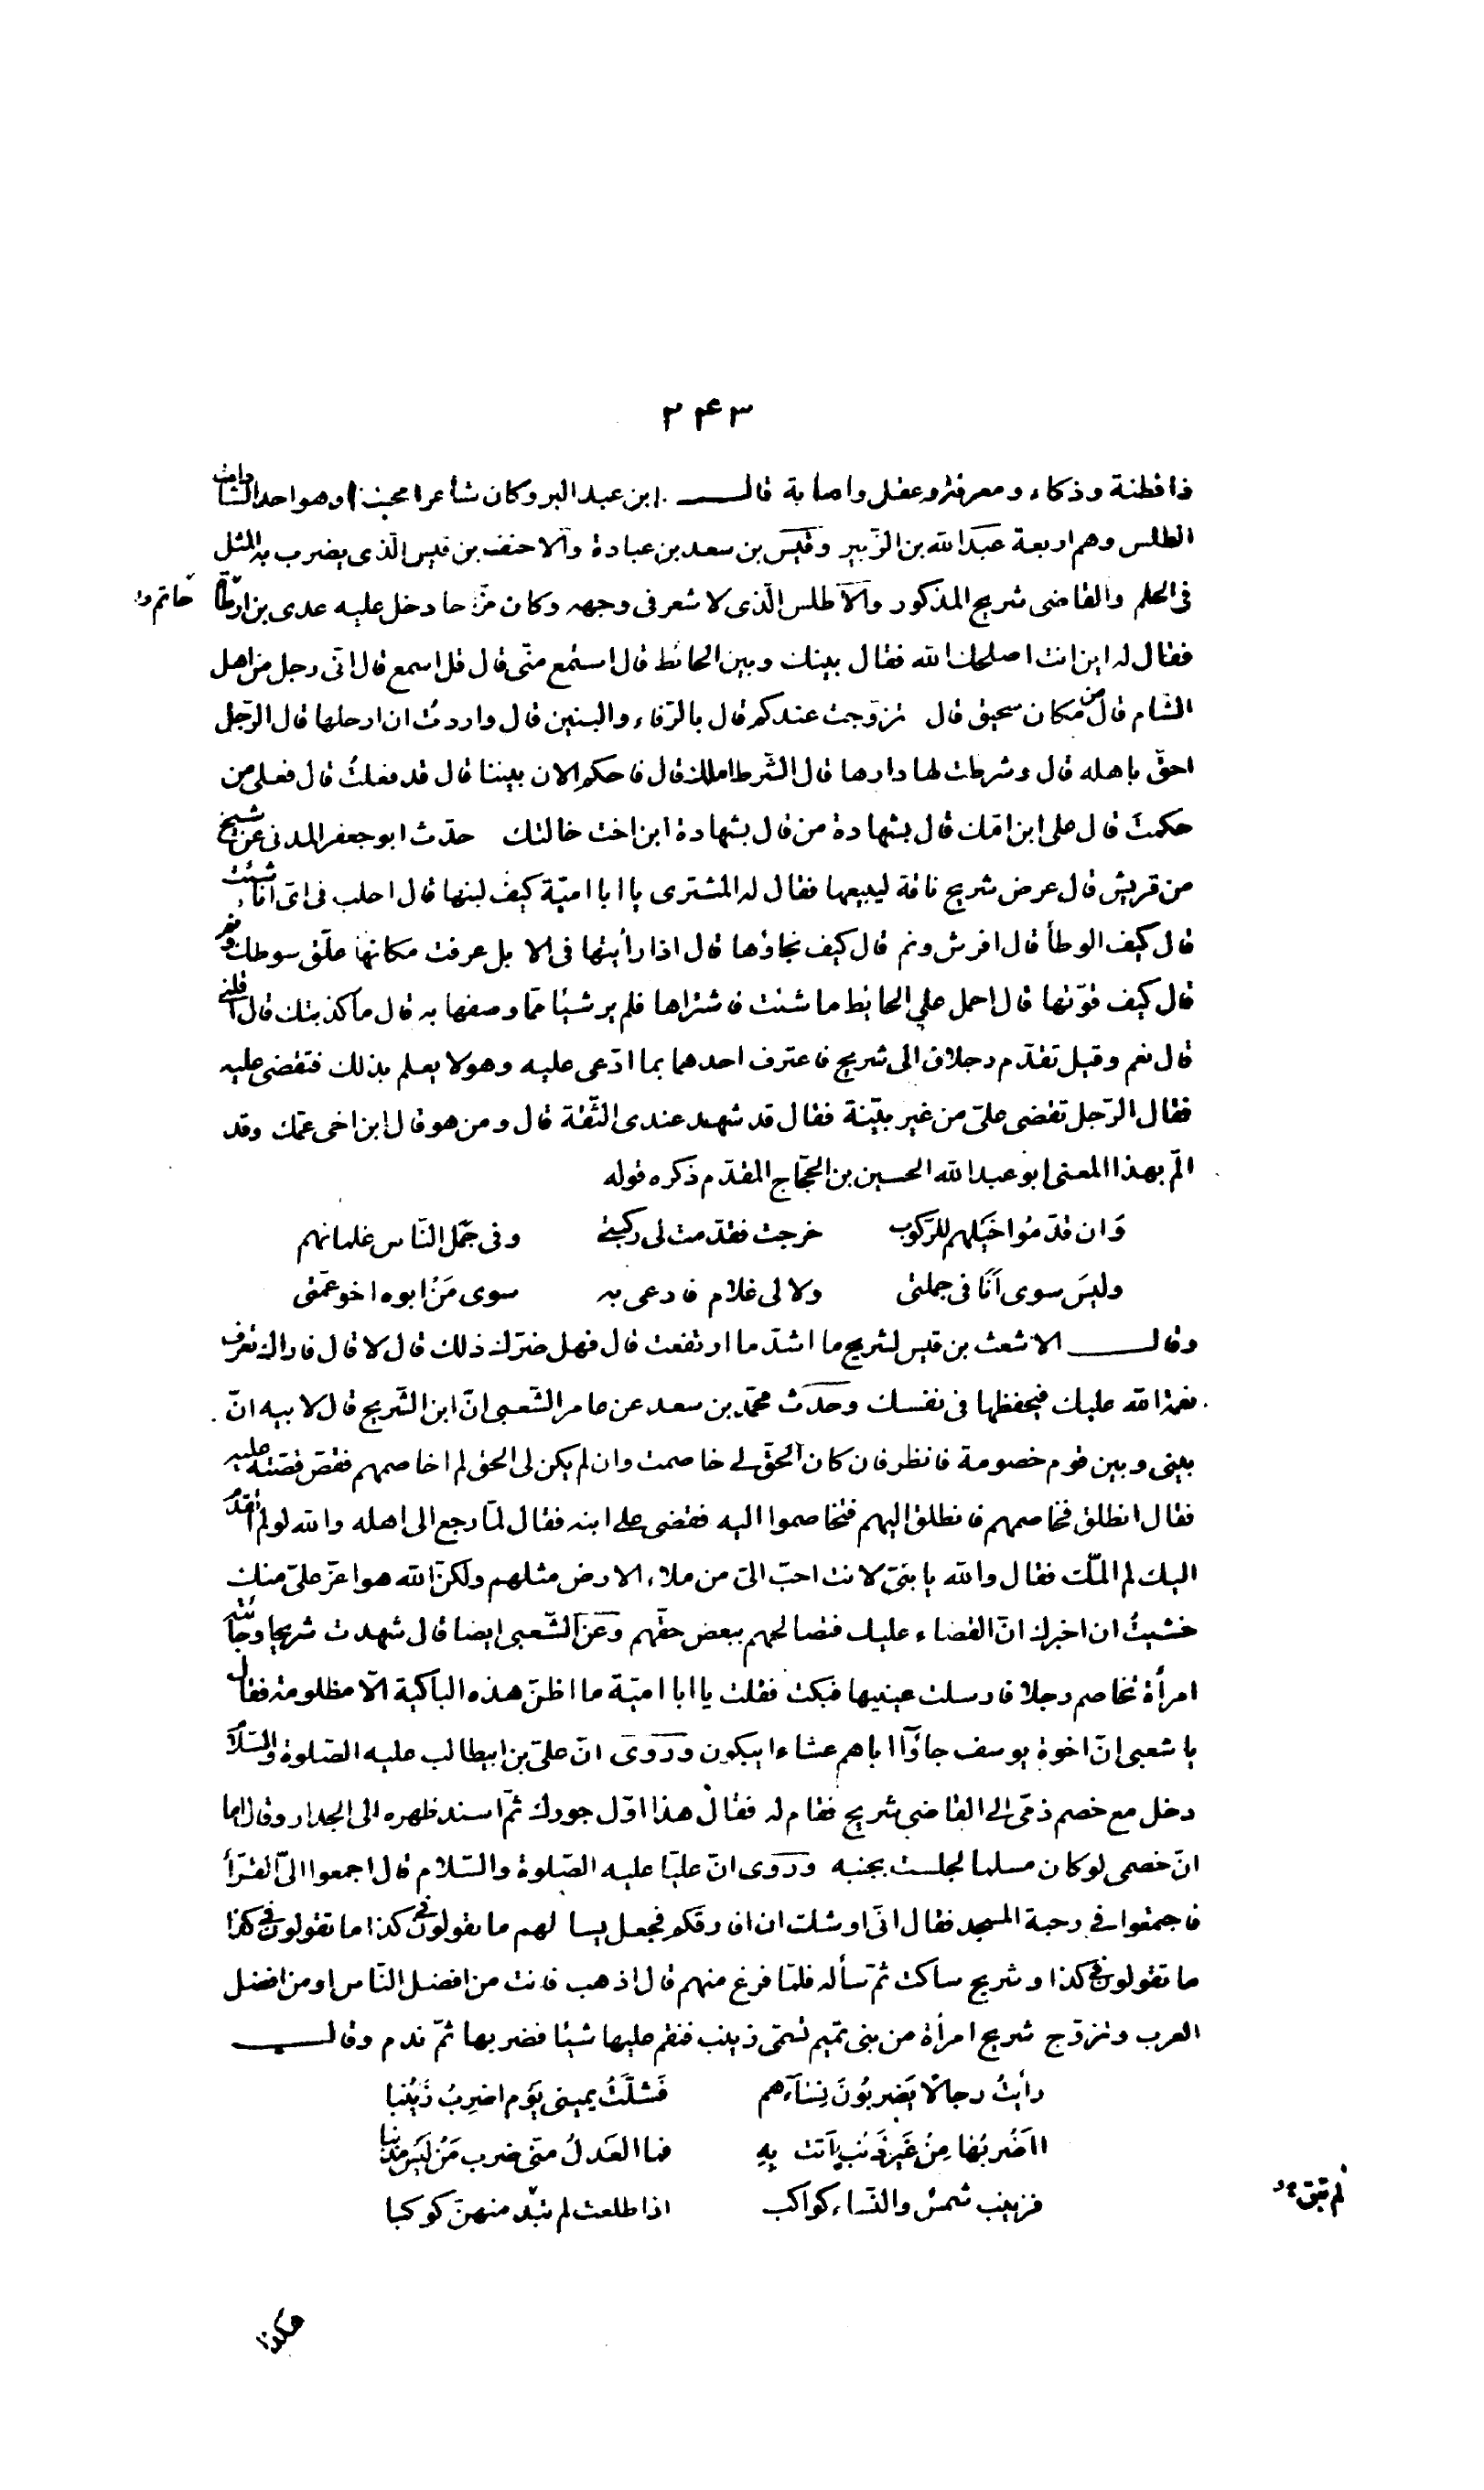 ۲۴۳
ذا فطنة وذكاء ومعرفة وعقل واصابة قال ابن عبد البر وكان شاعرا محسنا وهو احد السادات
الطلس وهم اربعة عبد الله بن الزبير وقيس بن سعد بن عبادة والاحنف بن قيس الّذى يضرب به المثل
فى الحلم والقاضى شريح المذكور والاطلس الّذى لا شعر فى وجهه وكان مزّاحا دخل عليه عدى بن ارطاة حاتم
فقال له اين انت اصلحك الله فقال بينك وبين الحائط قال استمع منّى قال قل اسمع قال انّى رجل من اهل
الشام قال من مكان سحيق قال تزوّجت عندكم قال بالرّفاء والبنين قال واردتُ ان ارحلها قال الرّجل
احقّ باهله قال وشرطت لها دارها قال الشّرط املك قال فاحكم الان بيننا قال قد فعلتُ قال فعلى من
حكمتَ قال على ابن امّك قال بشهادة من قال بشهادة ابن اخت خالتك حدّث ابو جعفر المدنى عن شيخ
من قريش قال عرض شريح ناقة ليبيعها فقال له المشترى يا ابا اميّة كيف لبنها قال احلب فى اىّ اناء شئت
قال كيف الوطأ قال افرش ونم قال كيف نجاؤها قال اذا رأيتها فى الابل عرفت مكانها علّق سوطك ونم
قال كيف قوّتها قال احمل على الحائط ما شئت فاشتراها فلم ير شيئا ممّا وصفها به قال ما كذبتك قال اقلنى
قال نعم وقيل تقدّم رجلان الى شريح فاعترف احدهما بما ادّعى عليه وهو لا يعلم بذلك فقضى عليه
فقال الرّجل تقضى علىّ من غير بيّنة فقال قد شهد عندى الثّقة قال ومن هو قال ابن اخى عمّك وقد
المّ بهذا المعنى ابو عبد الله الحسين بن الحجّاج المقدّم ذكره قوله
وَان قدّمُوا خَيلهم للرّكوب خرجت فقدّمت لى ركبتى وفى جُمَل النّاس غلمانهم
وليسَ سوى اَنَا فى جملتى ولا لى غلام فادعى به سوى مَنْ ابوه اخو عمّتى
وقال الاشعث بن قيس لشريح ما اشدّ ما ارتفعت قال فهل ضرّك ذلك قال لا قال فاراك تعرف
نعمة الله عليك فيحفظها فى نفسك وحدّث محمّد بن سعد عن عامر الشّعبى انّ ابن الشّريح قال لابيه انّ
بينى وبين قوم خصومة فانظر فان كان الحقّ لى خاصمت وان لم يكن لى الحق لم اخاصمهم فقصّ قصّته عليه
فقال انطلق فخاصمهم فانطلق اليهم فتخاصموا اليه فقضى على ابنه فقال لمّا رجع الى اهله والله لو لم اتقدّم
اليك لم المّك فقال والله يا بنىّ لانت احبّ الىّ من ملاء الارض مثلهم ولكنّ الله هو اعزّ علىّ منك
خشيتُ ان اخبرك انّ القضاء عليك فتصالحهم ببعض حقّهم وعَن الشّعبى ايضا قال شهدت شريحا وجائته
امرأة تخاصم رجلا فارسلت عينيها فبكت فقلت يا ابا اميّة ما اظنّ هذه الباكية الّا مظلومة فقال
يا شعبى انّ اخوة يوسف جاؤآ اباهم عشاءا يبكون ورَوى انّ علىّ بن ابيطالب عليه الصّلوة والسّلام
دخل مع خصم ذمّى الى القاضى شريح فقام له فقال هذا اوّل جورك ثمّ اسند ظهره الى الجدار وقال اما
انّ خصمى لو كان مسلما لجلست بجنبه ورَوى انّ عليّا عليه الصّلوة والسّلام قال اجمعوا الىّ القرّآء
فاجمعوا فى رحبة المسجد فقال انّى اوشك ان افارقكم فجعل يسا لهم ما يقولون فى كذا ما تقولون فى كذا
ما تقولون فى كذا وشريح ساكت ثمّ سأله فلمّا فرغ منهم قال اذهب فانت من افضل النّاس او من افضل
العرب وتزوّج شريح امرأة من بنى تميم تسمّى زينب فنقم عليها شيئا فضربها ثمّ ندم وقال
رأيتُ رجالًا يَضربُونَ نِسَآءَهم فَشلَّتْ يمينى يَوْم اضرِبُ زَيْنبا
ااَضْربُها مِنْ غَير ذَنْبٍ اَتت بِهِ فما العَدلُ منّى ضرب مَنْ لَيْسَ مذنبا
فزينب شمسٌ والنّساء كواكب اذا طلعت لم تبد منهنّ كوكبا
لم تبق
هكذا